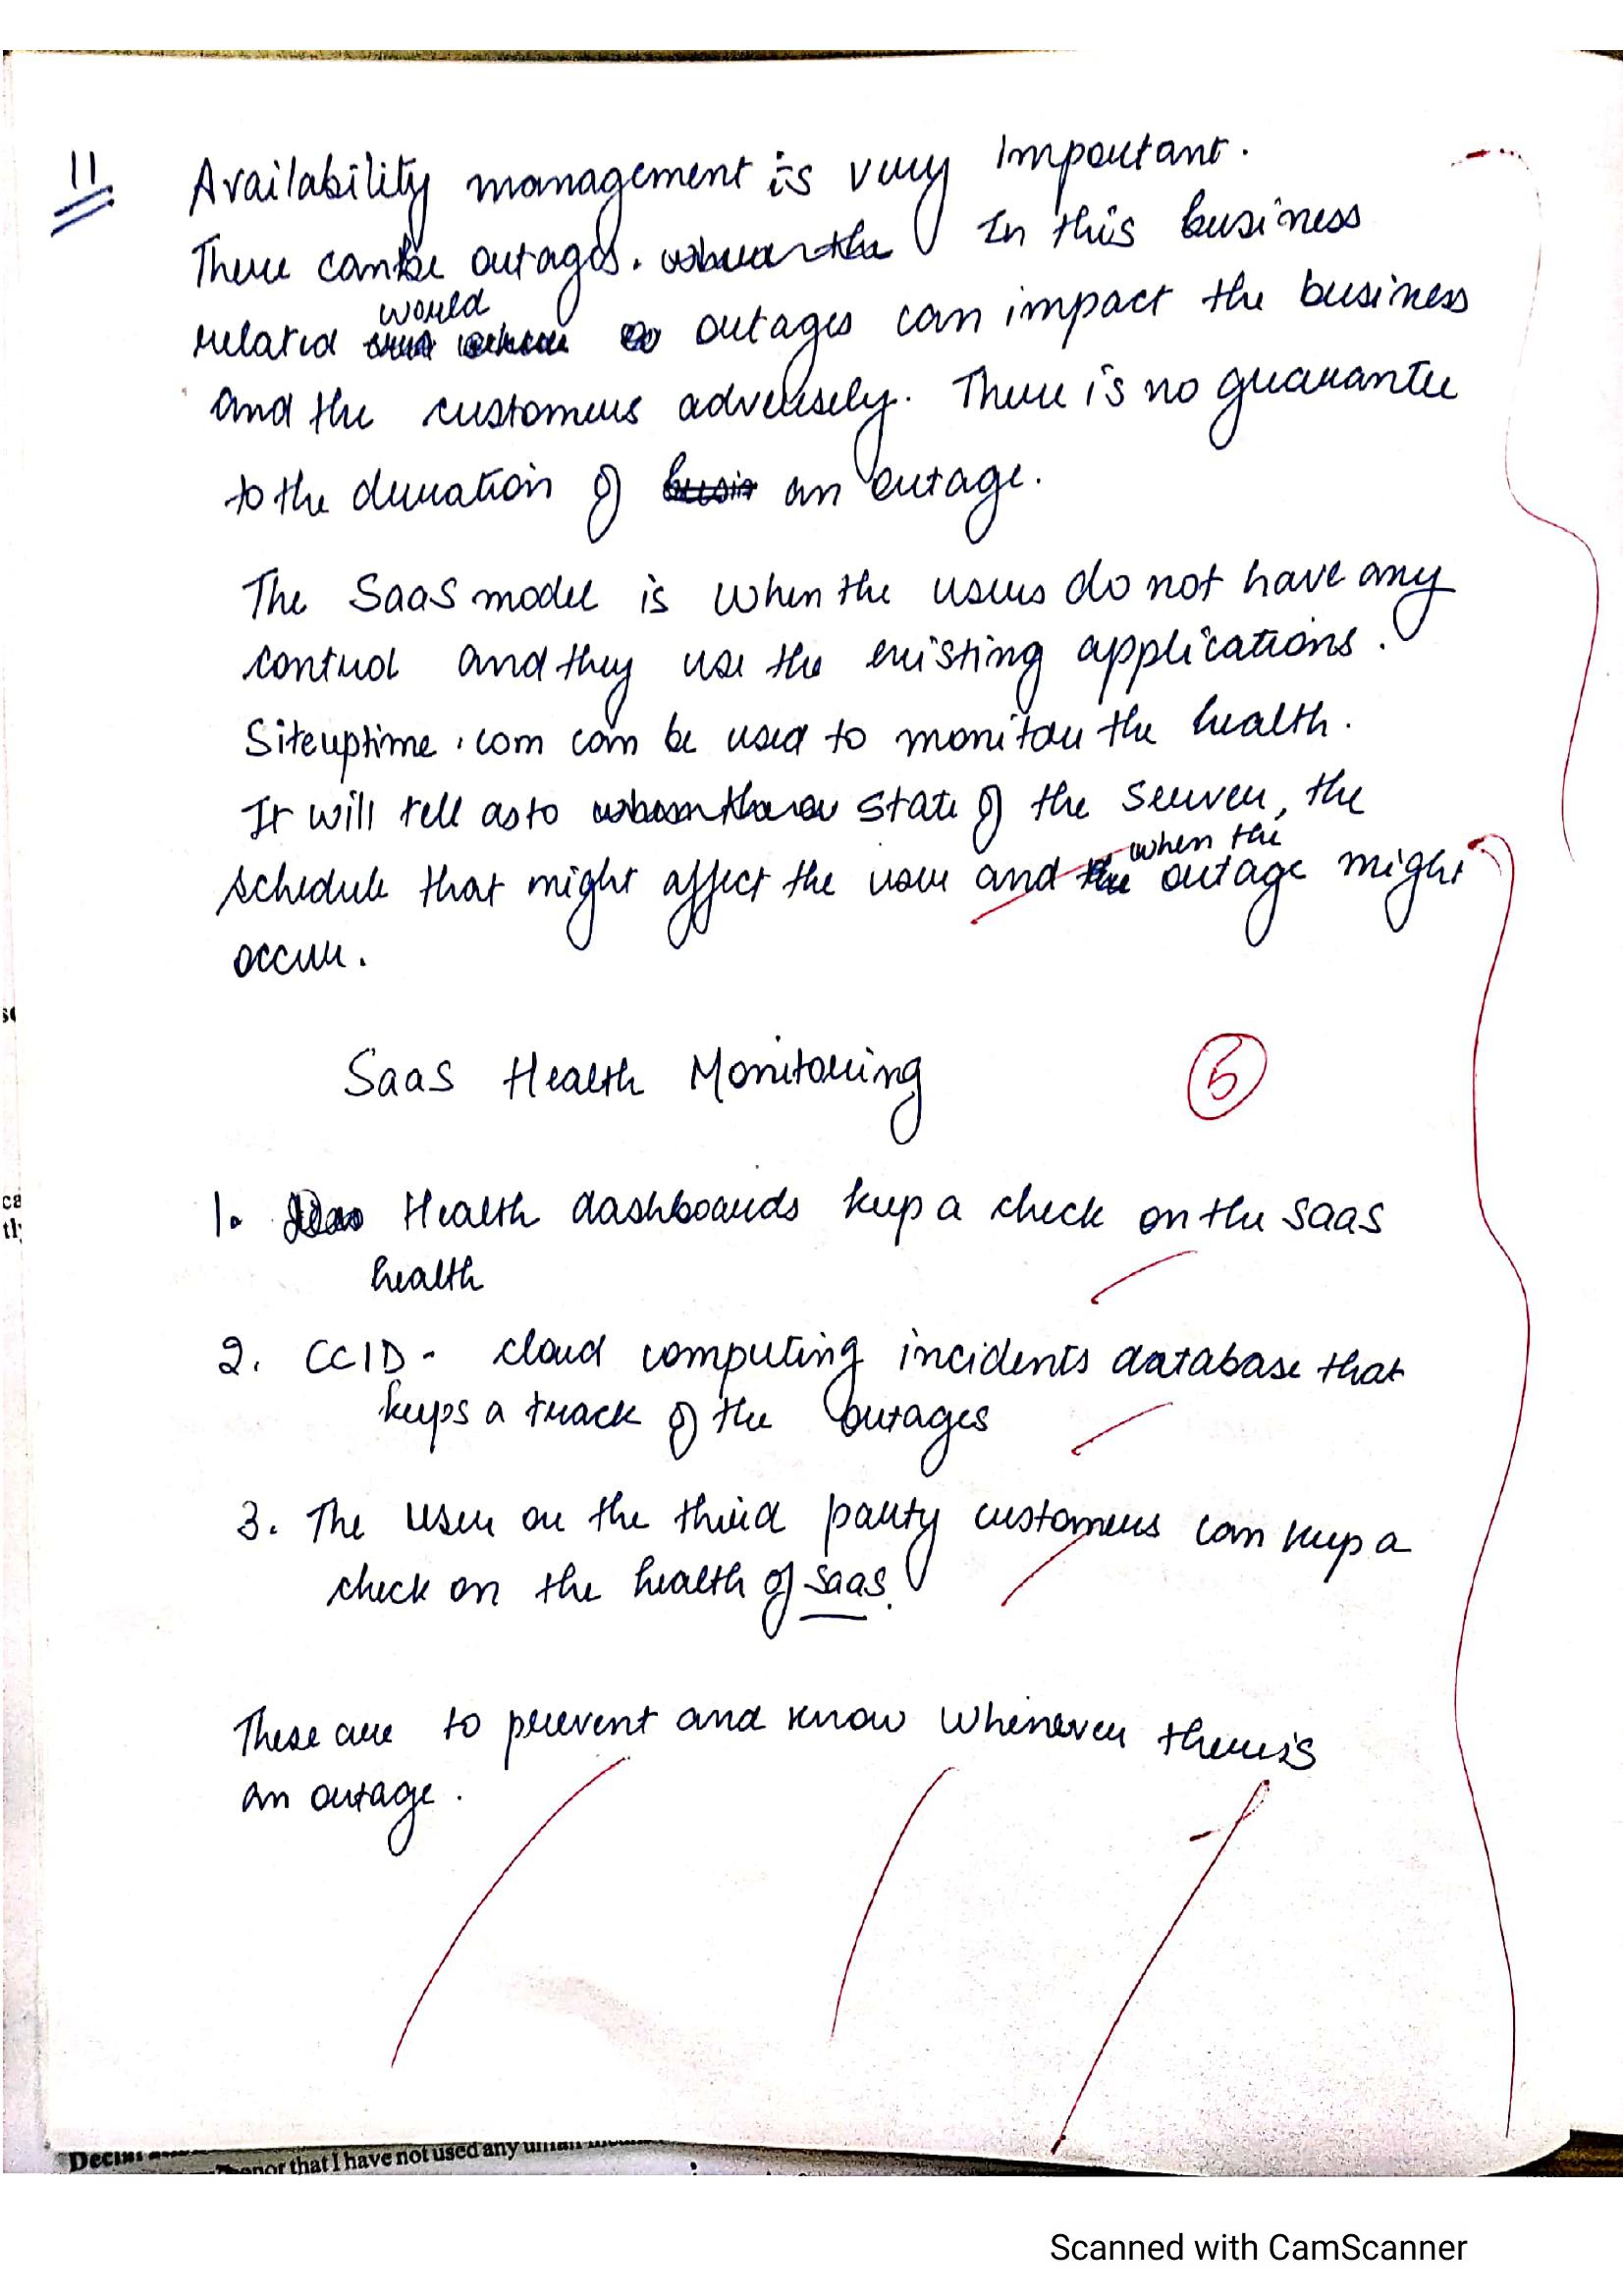 11 Availability management is very Important.
There can be outages. In this business
related would outages can impact the business
and the customers adversely. There is no guarantee
to the duration of an outage.
The SaaS model is when the users do not have any
control and they use the existing applications.
Siteuptime.com can be used to monitor the health.
It will tell as to state of the server, the
schedule that might affect the user and when the outage might
occur.
SaaS Health Monitoring
5
1. Health dashboards keep a check on the SaaS
health
2. CCID - cloud computing incidents database that
keeps a track of the outages
3. The user or the third party customers can keep a
check on the health of SaaS.
These are to prevent and know whenever there is
an outage.
that I have not used any
Scanned with CamScanner